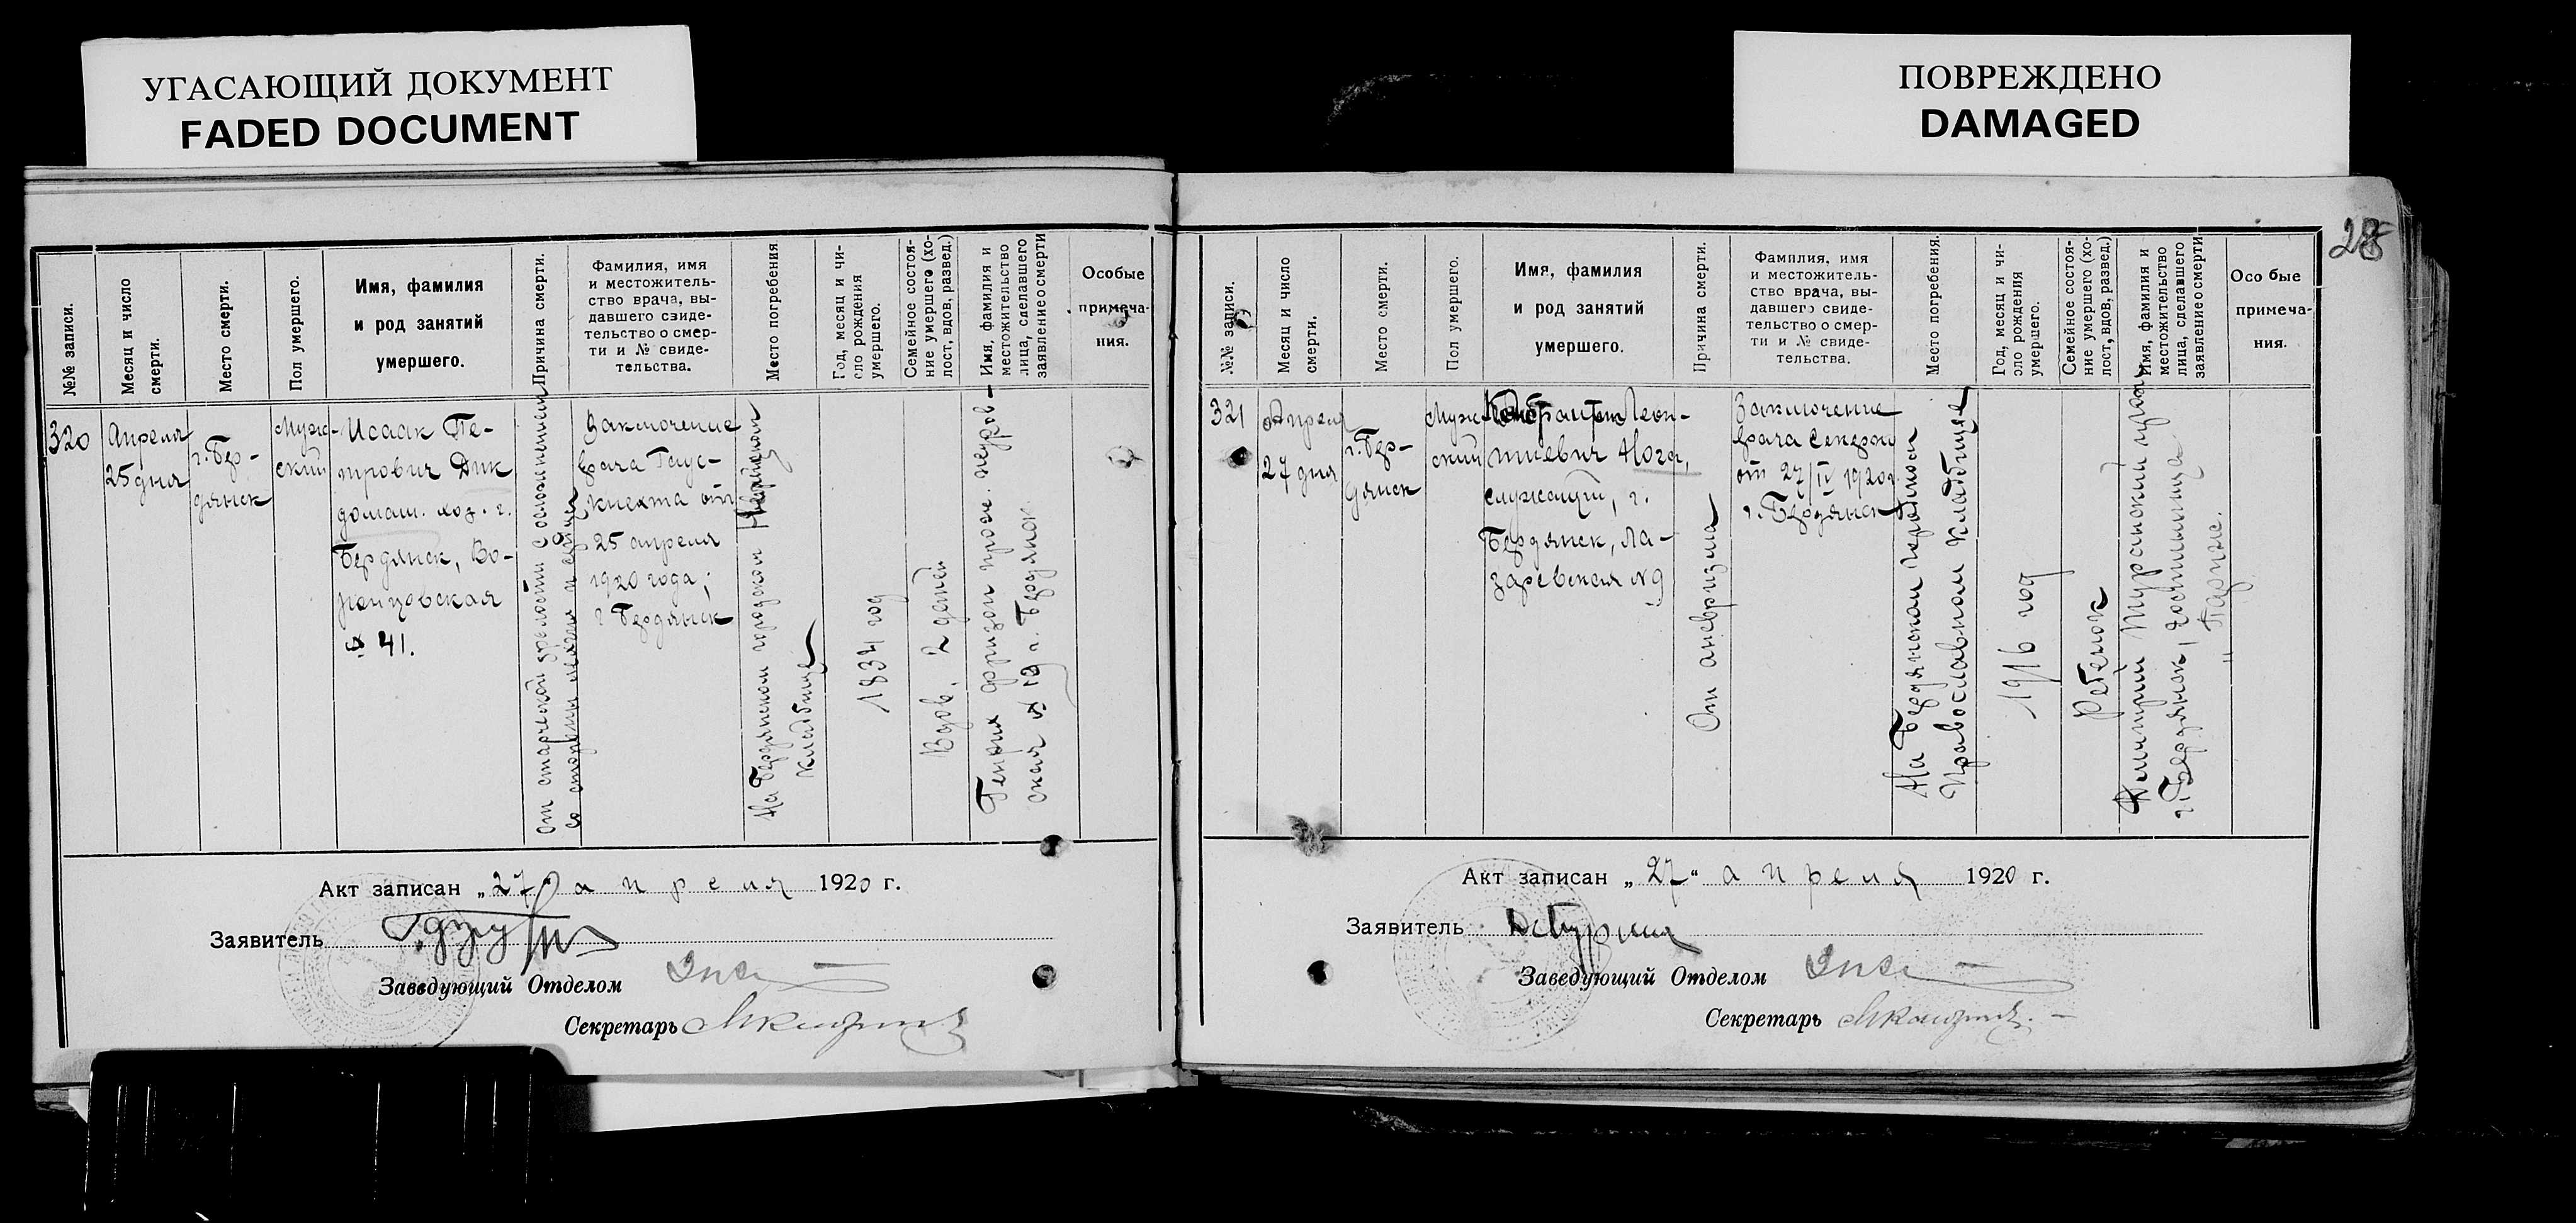 УГАСАЮЩИЙ ДОКУМЕНТ
FADED DOCUMENT
ПОВРЕЖДЕНО
DAMAGED
№№ записи.
Месяц и число
смерти.
Место смерти.
Пол умершего.
Имя, фамилия
и род занятий
умершего.
Причина смерти.
Фамилия, имя
и местожитель-
ство врача, вы-
давшего свиде-
тельство о смер-
ти и № свиде-
тельства.
Место погребения
Год, месяц и чи-
сло рождения
умершего.
Семейное состоя-
ние умершего (хо-
лост, вдов, развед.)
Имя, фамилия и
местожительство
лица, сделавшего
заявление о смерти
Особые
примеча-
ния.
320
Апреля
25 дня
г. Бер-
дянск
Муж-
ский
Исаак Пе-
трович Дик
домаш. хоз. г.
Бердянск, Во-
ронцовская
№ 41.
От старческой дрялости с осложнением
со стороны легких и сердца
Заключение
врача Гаус-
кнехта от
25 апреля
1920 года;
г Бердянск
На Бердянском городском
кладбище
1834 год
Вдов. 2 детей
Генрих Фризен просп.
ская № 19 г. Бердянск
Акт записан „27" апреля 1920 г.
Заявитель
Заведующий Отделом
Секретарь
28
№№ записи.
Месяц и число
смерти.
Место смерти.
Пол умершего.
Имя, фамилия
и род занятий
умершего.
Причина смерти.
Фамилия, имя
и местожитель-
ство врача, вы-
давшего свиде-
тельство о смер-
ти и № свиде-
тельства.
Место погребения.
Год, месяц и чи-
сло рождения
умершего.
Семейное состоя-
ние умершего (хо-
лост, вдов, развед.)
Имя, фамилия и
местожительство
лица, сделавшего
заявление о смерти
Особые
примеча-
ния.
321
Апреля
27 дня
г. Бер-
дянск
Муж-
ский
Леон-
тиевич Нога,
служащий, г.
Бердянск, Ла-
заревская № 9
От аневризма
Заключение
врача
от 27/IV 1920г
г. Бердянск
На Бердянском городском
Православном кладбище
1916 год
Ребенок
Димитрий Турский
г. Бердянск, гостинница
"Париж".
Акт записан „27" апреля 1920 г.
Заявитель
Заведующий Отделом
Секретарь